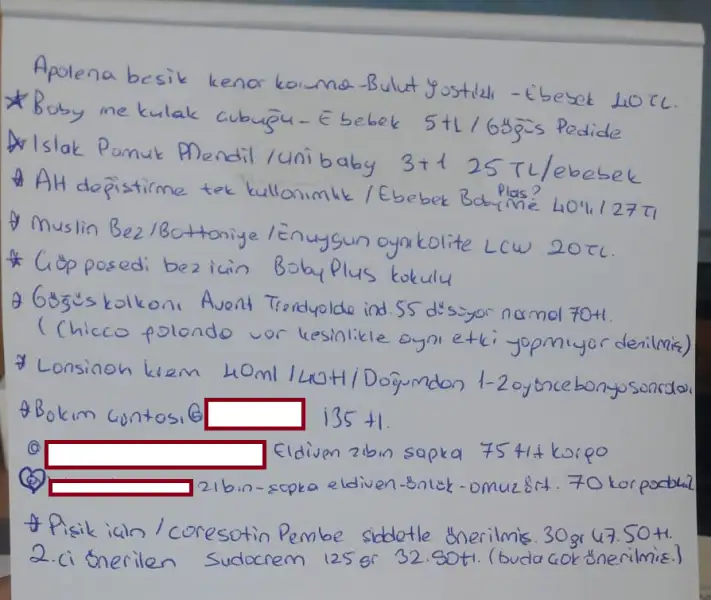 Apolena besik kenar koruma-Bulut Yastıklı - Ebebek 40 TL.
* Baby me kulak cubuğu - Ebebek 5 tl / Göğüs Pedide
* Islak Pamuk Mendil / uni baby 3+1 25 TL/ebebek
* Alt değistirme tek kullanımlık / Ebebek Baby me Plus? 40'lı / 27 Tl
* Muslin Bez/Battaniye / Enuygun aynı kalite LCW 20 TL.
* Cöp posedi bez icin Baby Plus kokulu
* Göğüs kalkanı Avent Trendyolda ind. 55 düsüyor normal 70tl.
( Chicco falanda var kesinlikle aynı etki yapmıyor denilmis)
* Lansinoh krem 40ml / 40tl / Doğumdan 1-2 ay önce banyo sonrası
* Bakım Cantası @ 135 tl.
@ Eldiven zıbın sapka 75 tl+ kargo
zıbın-sapka eldiven-önlük-omuz ört. 70 kargo dahil
* Pisik icin / coresatin Pembe siddetle önerilmis. 30gr 47.50tl.
2.ci önerilen Sudocrem 125 gr 32.90tl. (buda cok önerilmis.)